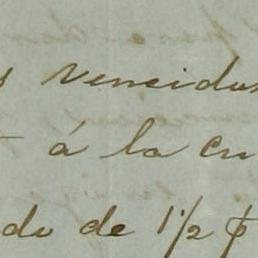 s vencidos
á la cu
do de 1 1/2 p